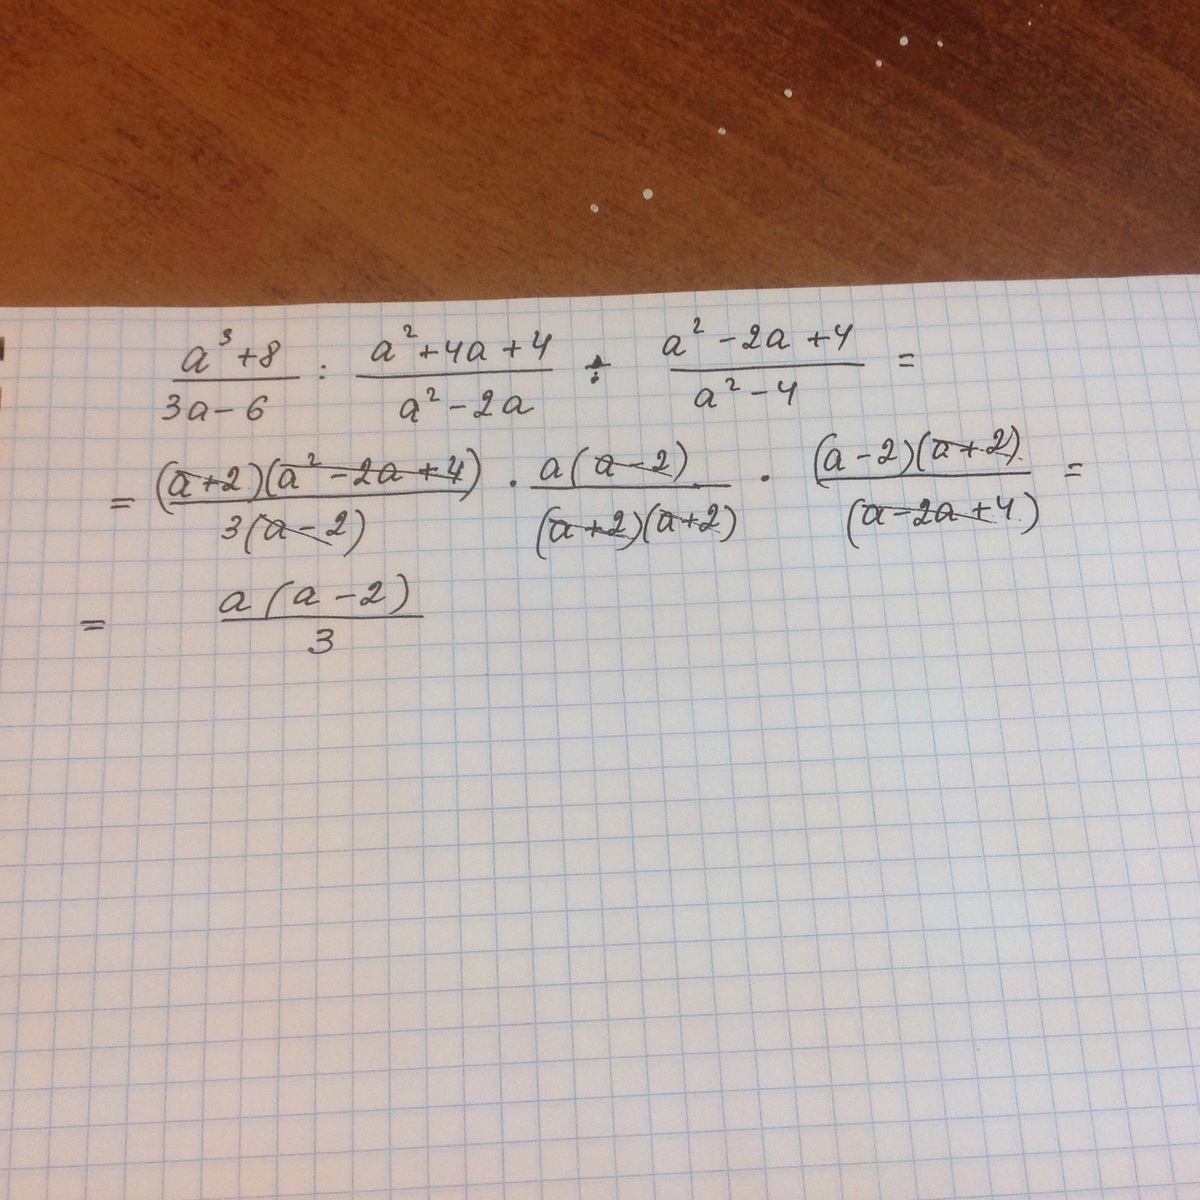 (a³+8)/(3a-6) : (a²+4a+4)/(a²-2a) ÷ (a²-2a+4)/(a²-4) =
= (a+2)(a²-2a+4)/3(a-2) · a(a-2)/(a+2)(a+2) · (a-2)(a+2)/(a-2a+4) =
= a(a-2)/3